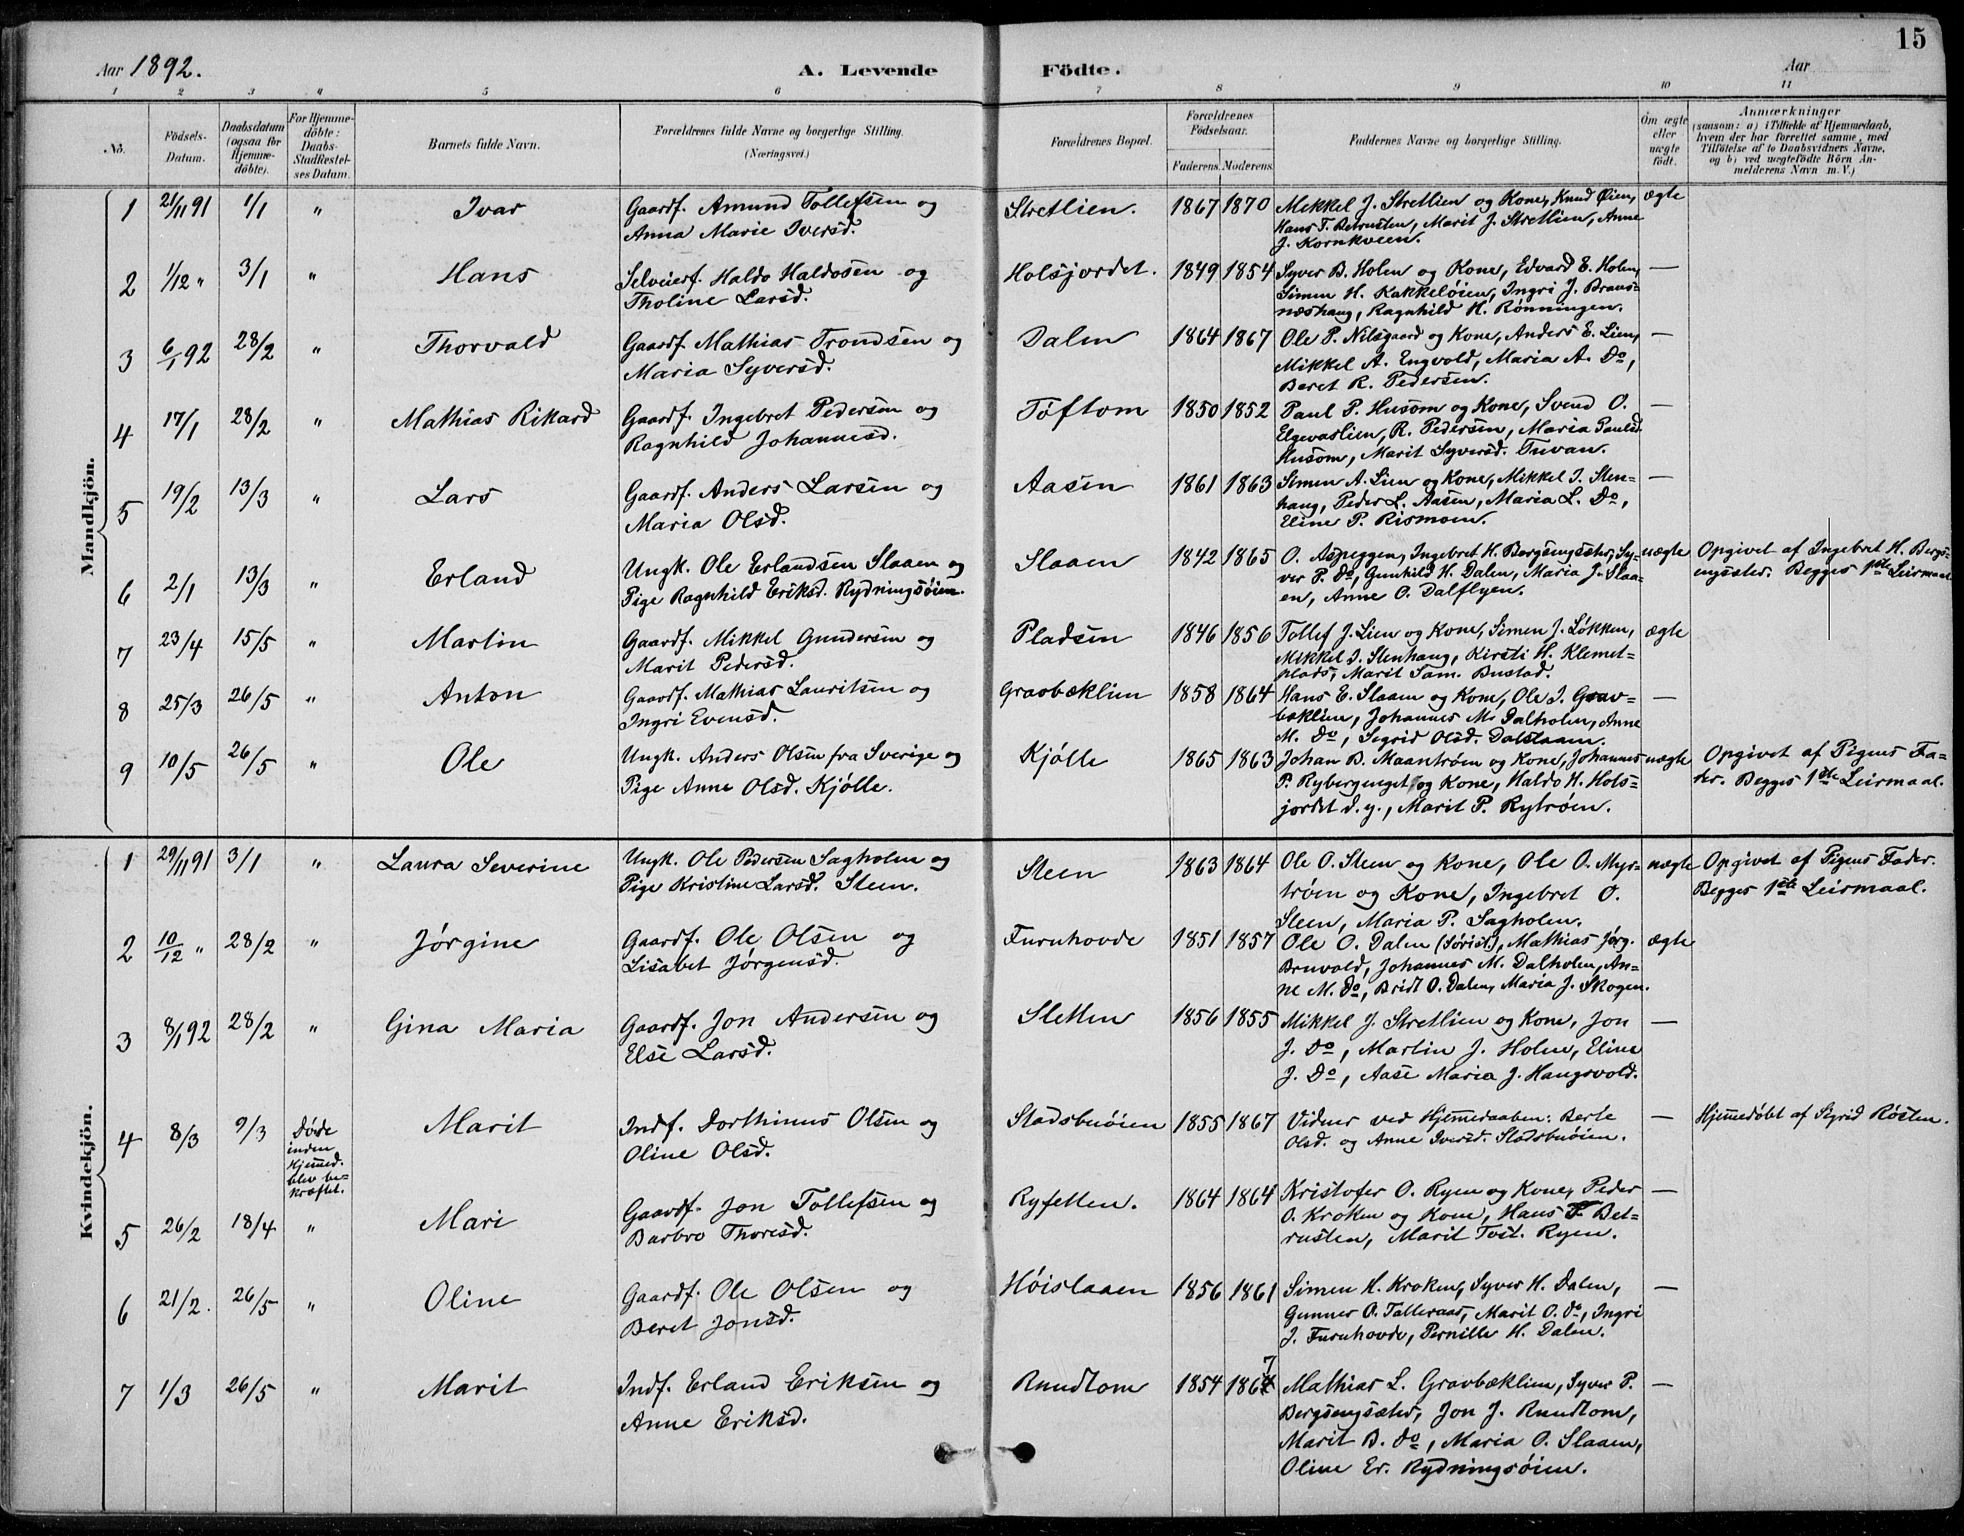 15
Aar 1892. A. Levende Födte. Aar
1 2 3 4 5 6 7 8 9 10 11
No. Födsels-Datum. Daabsdatum (ogsaa for Hjemmedöbte). For Hjemmedöbte: Daabs-Stadfæstelses Datum. Barnets fulde Navn. Forældrenes fulde Navne og borgerlige Stilling. (Næringsvei.) Forældrenes Bopæl. Forældrenes Födselsaar. Faderens. Moderens. Faddernes Navne og borgerlige Stilling. Om ægte eller uægte födt. Anmærkninger (saasom: a) i Tilfælde af Hjemmedaab, hvem der har forrettet samme, med Tilföielse af to Daabsvidners Navne, og b) ved uægtefödte Börn Anmelderens Navn m. V.)
Mandkjön.
1 21/11 91 1/1 " Ivar Gaardf. Amund Tollefsen og Stretlien. 1867 1870 Mikkel J. Stretlien og Kone, Knud Øien, ægte
Anna Marie Iversd. Hans T. Betrusten, Marit J. Stretlien, Anne
J. Kornkveen.
2 1/12 " 3/1 " Hans Selveierf. Haldo Haldosen og Holsjordet. 1849 1854 Syver B. Holen og Kone, Edvard E. Holen, —
Tholine Larsd. Simen H. Kakkeløien, Ingri J. Brans-
næshaug, Ragnhild H. Rønningen.
3 6/1 92 28/2 " Thorvald Gaardf. Mathias Trondsen og Dalen 1864 1867 Ole P. Nilsgaard og Kone, Anders E. Lien, —
Maria Syversd. Mikkel A. Engvold, Maria A. Do,
Beret R. Pedersen.
4 17/1 28/2 " Mathias Rikard Gaardf. Ingebret Pedersen og Tøftom 1850 1852 Paul P. Husom og Kone, Svend O. —
Ragnhild Johannesd. Elgevaslien, R. Pedersen, Maria Paulsd.
Husom, Marit Syversd. Tuvan.
5 19/2 13/3 " Lars Gaardf. Anders Larsen og Aasen 1861 1863 Simen A. Lien og Kone, Mikkel I. Sten- —
Maria Olsd. haug, Peder L. Aasen, Maria L. Do,
Eline P. Rismoen.
6 2/1 13/3 " Erland Ungk. Ole Erlandsen Slaaen og Slaaen 1842 1865 O. Aspeggen, Ingebret H. Bergsengsæter, Sy- uægte Opgivet af Ingebret H. Bergs-
Pige Ragnhild Eriksd. Rydningsøien. ver P. Do, Gunhild H. Dalen, Maria J. Slaa- engsæter. Begges 1ste Leirmaal
en, Anne O. Dalflyen.
7 23/4 15/5 " Martin Gaardf. Mikkel Gundersen og Pladsen 1846 1856 Tollef J. Lien og Kone, Simen J. Løkken, ægte
Marit Pedersd. Mikkel I. Stenhaug, Kirsti H. Klemet-
plads, Marit Sam. Bustad.
8 25/3 26/5 " Anton Gaardf. Mathias Lauritsen og Gravbæklien 1858 1864 Hans E. Slaaen og Kone, Ole I. Grav- —
Ingri Evensd. bæklien, Johannes M. Dalholen, Anne
M. Do, Sigrid Olsd. Dalslaaen.
9 10/5 26/5 " Ole Ungk. Anders Olsen fra Sverige og Kjølle 1865 1863 Johan B. Maantrøen og Kone, Johannes uægte Opgivet af Pigens Fa-
Pige Anne Olsd. Kjølle. P. Rybergenget og Kone, Haldo H. Hols- der. Begges 1ste Leirmaal.
jordet d. y., Marit P. Rytrøen.
Kvindekjön.
1 29/11 91 3/1 " Laura Severine Ungk. Ole Pedersen Sagholen og Steen 1863 1864 Ole O. Steen og Kone, Ole O. Myr- uægte Opgivet af Pigens Fader.
Pige Kristine Larsd. Steen. trøen og Kone, Ingebret O. Begges 1ste Leirmaal.
Steen, Maria P. Sagholen.
2 10/12 " 28/2 " Jørgine Gaardf. Ole Olsen og Furuhovde 1851 1857 Ole O. Dalen (Sørist.), Mathias Jørg. ægte
Lisabet Jørgensd. Bruvold, Johannes M. Dalholen, An-
ne M. Do, Bridt O. Dalen, Maria J. Skogen.
3 8/1 92 28/2 " Gina Maria Gaardf. Jon Andersen og Sletten 1856 1855 Mikkel J. Stretlien og Kone, Jon —
Else Larsd. J. Do, Martin J. Holen, Eline
J. Do, Aase Maria J. Haugsvold.
4 8/3 9/3 Døde inden Hjemmed. blev be-kræftet. Marit Indf. Dorthinus Olsen og Stadsbuøien 1855 1867 Vidner ved Hjemmedaaben: Berte — Hjemmedøbt af Sigrid Røsten.
Oline Olsd. Olsd. og Anne Iversd. Stadsbuøien.
5 26/2 18/4 " Mari Gaardf. Jon Tollefsen og Ryfetten. 1864 1864 Kristofer O. Ryen og Kone, Peder —
Barbro Thoresd. O. Kroken og Kone, Hans T. Bet-
rusten, Marit Tost. Ryen.
6 21/2. 26/5 " Oline Gaardf. Ole Olsen og Høislaaen 1856 1861 Simen H. Kroken, Syver H. Dalen, —
Beret Jonsd. Gunner O. Talleraas, Marit O. Do, Ingri
J. Furuhovde, Pernille H. Dalen.
7 1/3 26/5 " Marit Indf. Erland Eriksen og Rundtom 1854 1867 Mathias L. Gravbæklien, Syver P. —
Anne Eriksd. Bergsengsæter, Jon J. Rundtom,
Marit B. Do, Maria O. Slaaen,
Oline Er. Rydningsøien.